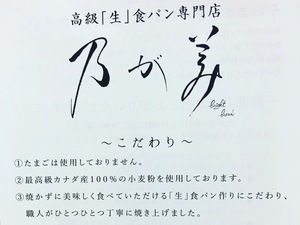 高級「生」食パン専門店
乃が美
〜こだわり〜
①たまごは使用しておりません。
②最高級カナダ産100%の小麦粉を使用しております。
③焼かずに美味しく食べていただける「生」食パン作りにこだわり、
職人がひとつひとつ丁寧に焼き上げました。